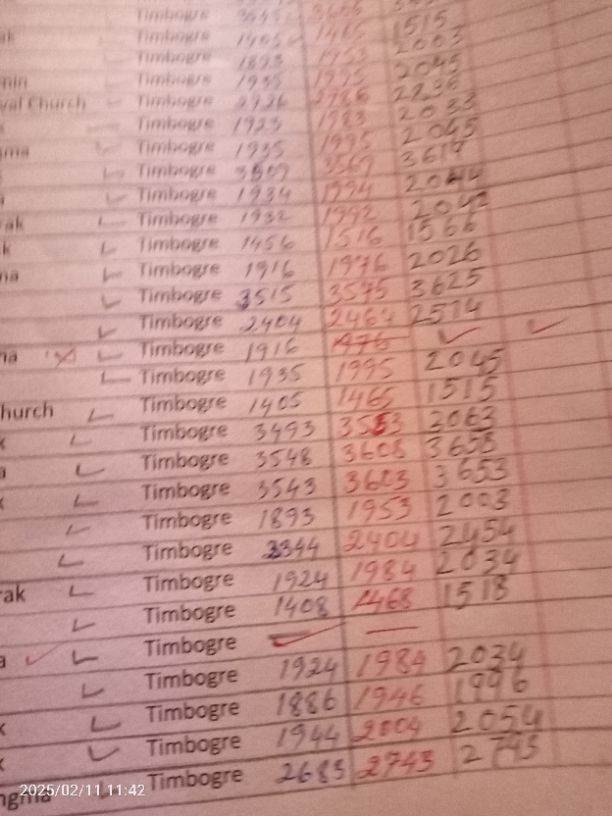 Timbogre
ak Timbogre 1405 1465 1515
Timbogre 1893 1953 2003
min Timbogre 1935 1995 2045
val Church Timbogre 2786 2236
Timbogre 1923 1983 2033
ma Timbogre 1935 1995 2045
Timbogre 3567 3617
Timbogre 1934 1994 2044
ak Timbogre 1932 1992 2042
k Timbogre 1456 1516 1566
na Timbogre 1916 1976 2026
Timbogre 3515 3575 3625
Timbogre 2404 2464 2514
na Timbogre 1916
Timbogre 1935 1995 2045
hurch Timbogre 1405 1465 1515
Timbogre 3493 3063
a Timbogre 3548 3608 3658
Timbogre 3543 3603 3653
Timbogre 1893 1953 2003
Timbogre 2344 2404 2454
rak Timbogre 1924 1984 2034
Timbogre 1408 1468 1518
a Timbogre
Timbogre 1924 1984 2034
Timbogre 1886 1946 1996
Timbogre 1944 2004 2054
ngma Timbogre 2683 2743 2793
2025/02/11 11:42